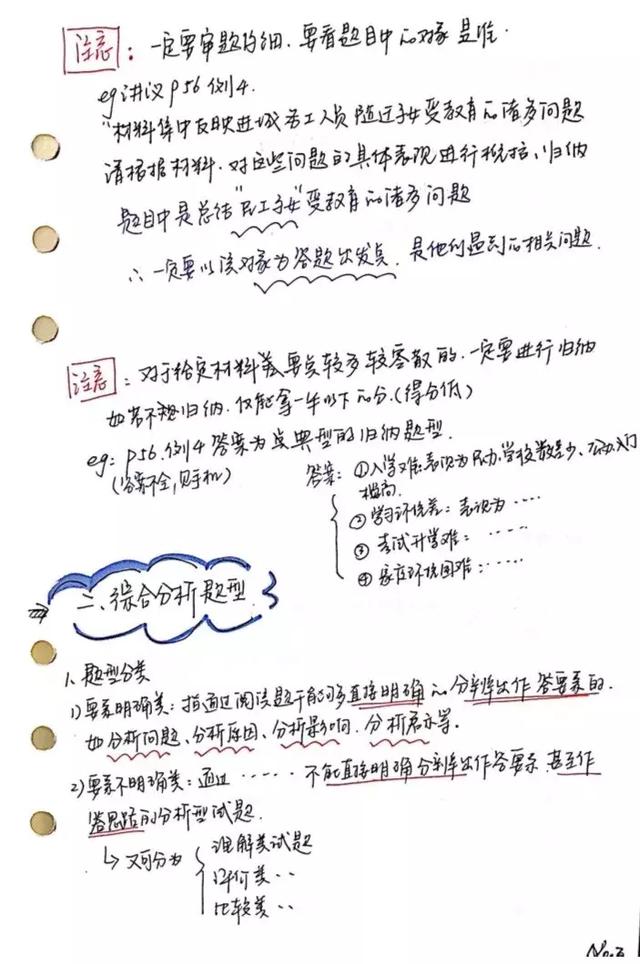 注意：一定要审题仔细.要看题目中的对象是谁.
eg讲议P56例4.
"材料集中反映进城务工人员随迁子女受教育的诸多问题
请根据材料.对这些问题的具体表现进行概括、归纳
题目中是总结"民工子女"受教育的诸多问题
∴一定要以该对象为答题出发点.是他们遇到的相关问题.
注意：对于给定材料类要点较多较零散的.一定要进行归纳
如若不规归纳.仅能拿一半以下的分.(得分低)
eg：P56.例4答案为点典型的归纳题型.
(答案不全,见手机)
答案：①入学难：表现为民办学校数量少、公办入门
槛高.
②学习环境差：表现为……
③考试升学难：……
④家庭环境困难：……
二、综合分析题型
1、题型分类
1)要素明确类：指通过阅读题干能够直接明确的分辨出作答要素的.
如分析问题、分析原因、分析影响.分析启示等.
2)要素不明确类：通过……不能直接明确分辨出作答要求.甚至作
答思路的分析型试题.
↳又可分为
理解类试题
评价类··
比较类··
No.3